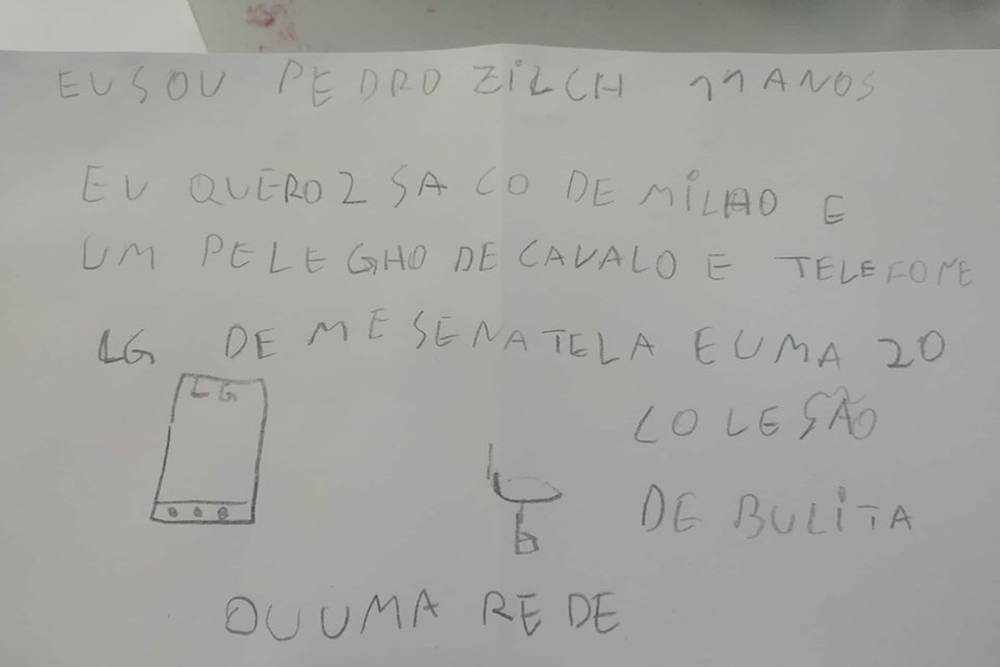 EU SOU PEDRO ZILCH 11 ANOS
EU QUERO 2 SACO DE MILHO E
UM PELEGHO DE CAVALO E TELEFONE
LG DE MESENATELA E UMA 20
LG
COLESÃO
DE BULITA
OU UMA REDE